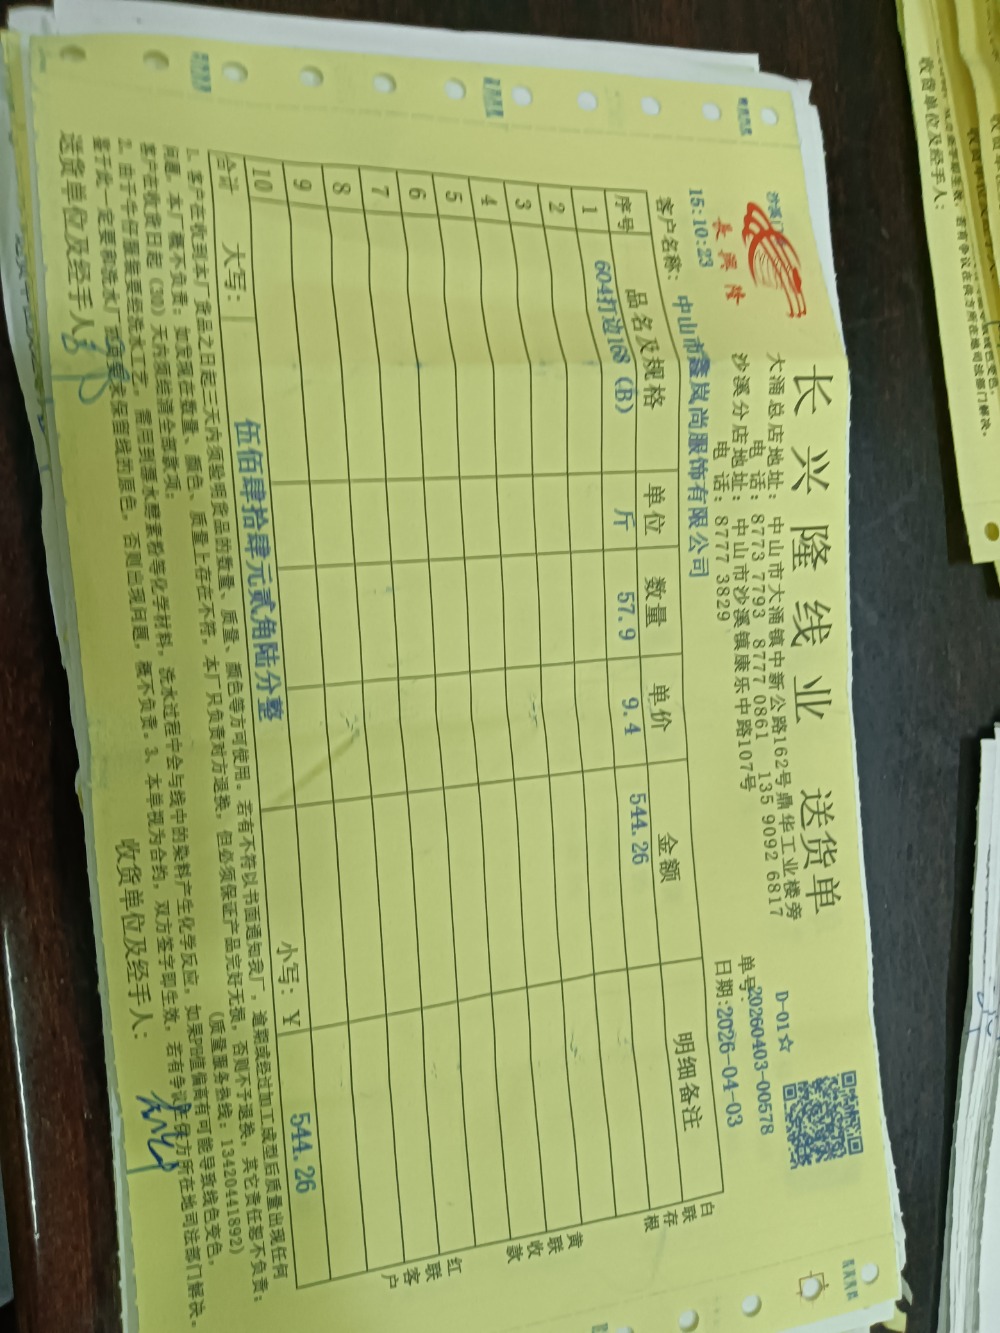 长兴隆线业 送货单
沙溪
長興隆
大涌总店地址：中山市大涌镇中新公路162号鼎华工业楼旁
电话：8773 7793 8777 0861 135 9092 6817
沙溪分店地址：中山市沙溪镇康乐中路107号
电话：8777 3829
D-01☆
单号:20260403-00578
日期:2026-04-03
15:10:23
客户名称： 中山市鑫岚尚服饰有限公司
序号 品名及规格 单位 数量 单价 金额 明细备注
1 604打边168（B） 斤 57.9 9.4 544.26
2
3
4
5
6
7
8
9
10
合计 大写： 伍佰肆拾肆元贰角陆分整 小写：￥ 544.26
白联存根
黄联收款
红联客户
1. 客户在收到本厂货品之日起三天内须验明货品的数量、质量、颜色等方可使用。若有不符以书面通知我厂，逾期或经过加工成型后质量出现任何
问题，本厂概不负责；如发现在数量、颜色、质量上存在不符，本厂只负责对方退换，但必须保证产品完好无损，否则不予退换，其它责任恕不负责；
客户在收货日起（30）天内须给清全部款项； （质量服务热线：13420441892）
2. 由于牛仔服装要经洗水工艺，需用到漂水酵素粉等化学材料，洗水过程中会与线中的染料产生化学反应，如果PH值偏高有可能导致线色变色，
鉴于此，一定要和洗水厂 要求保留线的原色，否则出现问题，概不负责。3、本单视为合约，双方签字即生效，若有争议在供方所在地司法部门解决。
送货单位及经手人： 收货单位及经手人：
收货单位及经手人：
若有争议在供方所在地司法部门解决。